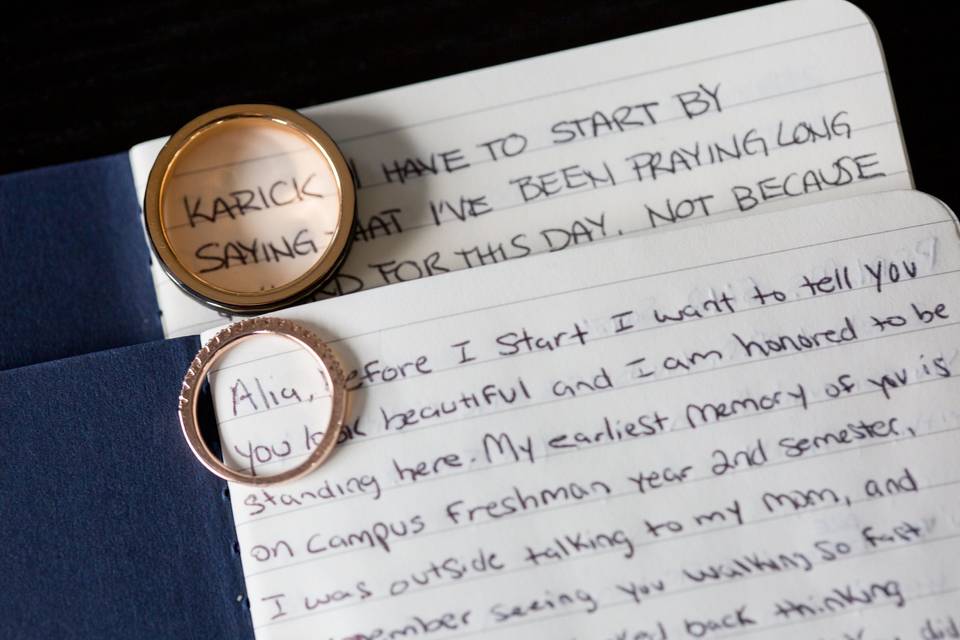 KARICK I HAVE TO START BY
SAYING THAT I'VE BEEN PRAYING LONG
FOR THIS DAY. NOT BECAUSE
Alia, Before I Start I want to tell you
you look beautiful and I am honored to be
standing here. My earliest memory of you is
on campus Freshman year 2nd semester,
I was outside talking to my mom, and
seeing you walking so fast
back thinking